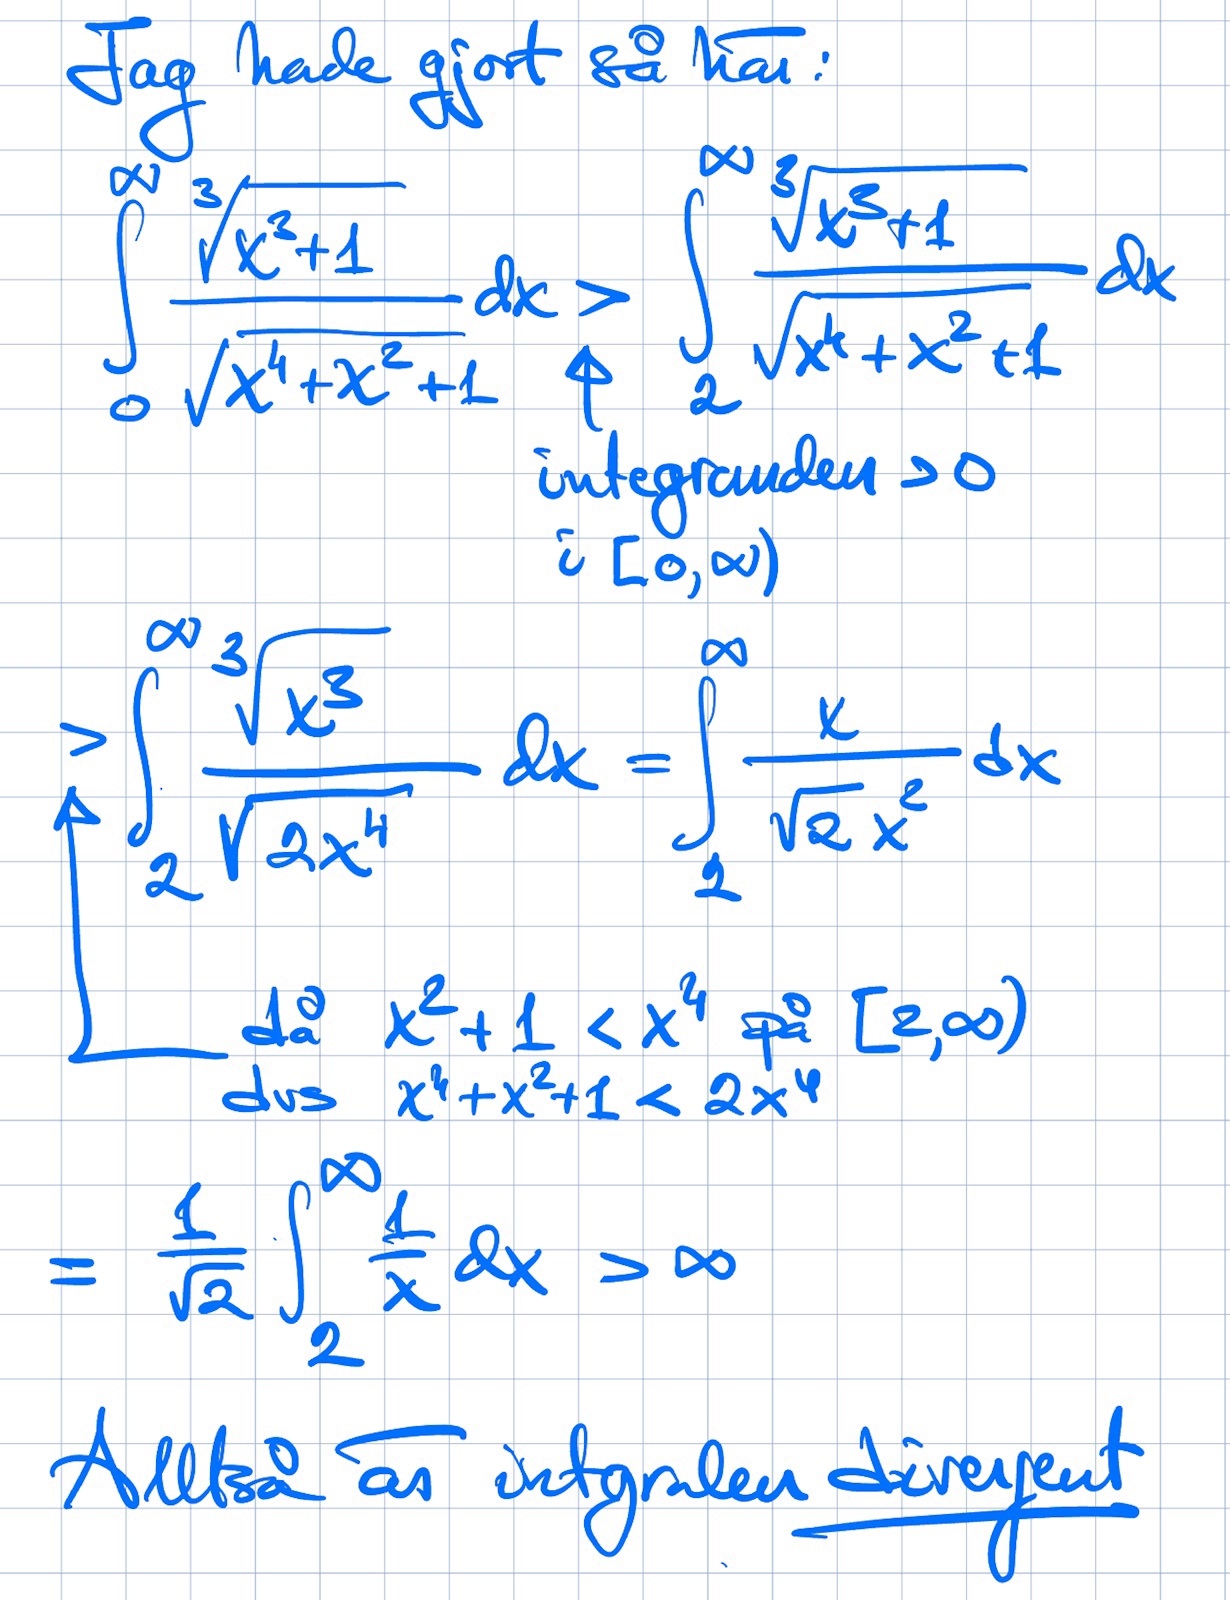 Jag hade gjort så här:
∫₀^∞ ∛(x³+1) / √(x⁴+x²+1) dx > ∫₂^∞ ∛(x³+1) / √(x⁴+x²+1) dx
↑
integranden >0
i [0,∞)
> ∫₂^∞ ∛(x³) / √(2x⁴) dx = ∫₂^∞ x / (√2 x²) dx
då x²+1 < x⁴ på [2,∞)
dvs x⁴+x²+1 < 2x⁴
= 1/√2 ∫₂^∞ 1/x dx > ∞
Alltså är intgralen divergent